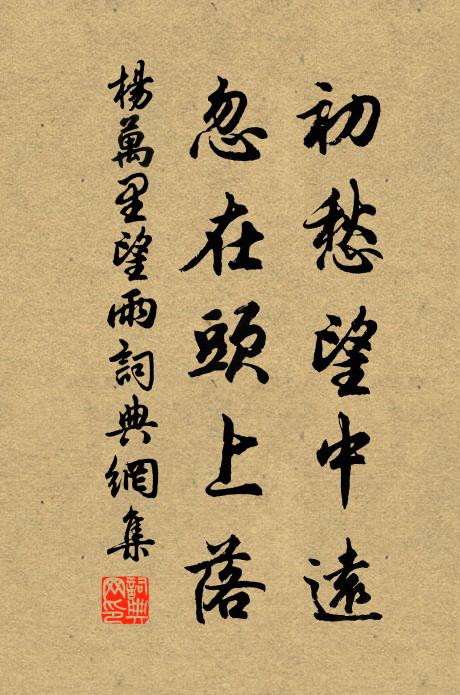 初愁望中遠
忽在頭上落
楊萬里望雨詞典網集
詞典网印